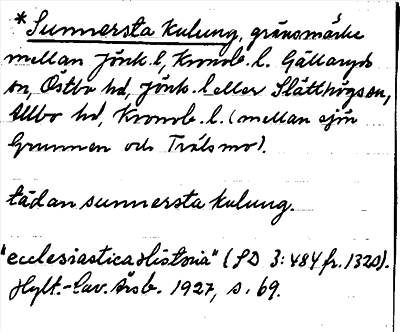 *Sunnersta kulung, gränsmärke
mellan Jönk. l, Kronob. l. Gällaryds
sn, Östbo hd, Jönk. l eller Slätthögs sn,
Allbo hd, Kronob. l. (mellan sjön
Grunnen och Trälsmo).
tädan sunnersta kulung.
"ecclesiastica Historia" (SD 3:484 fr. 1320).
Hylt.-Cav. Årsb. 1927, s. 69.